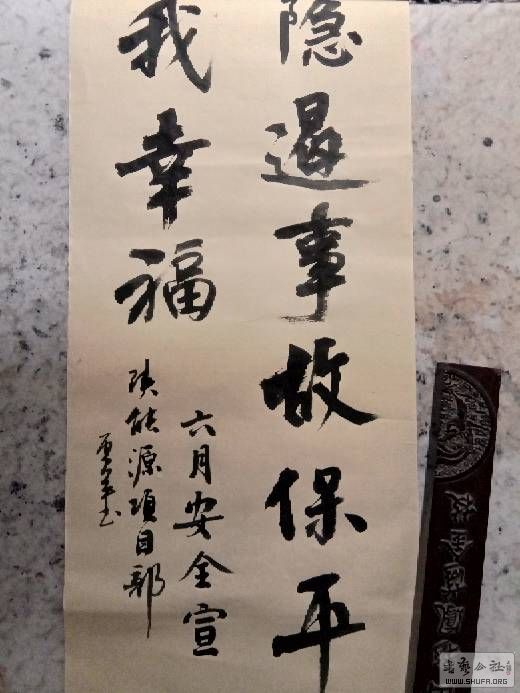 隐遏事故保平
我幸福
六月安全宣
陕能源项目部
書法公社
WWW.SHUFA.ORG